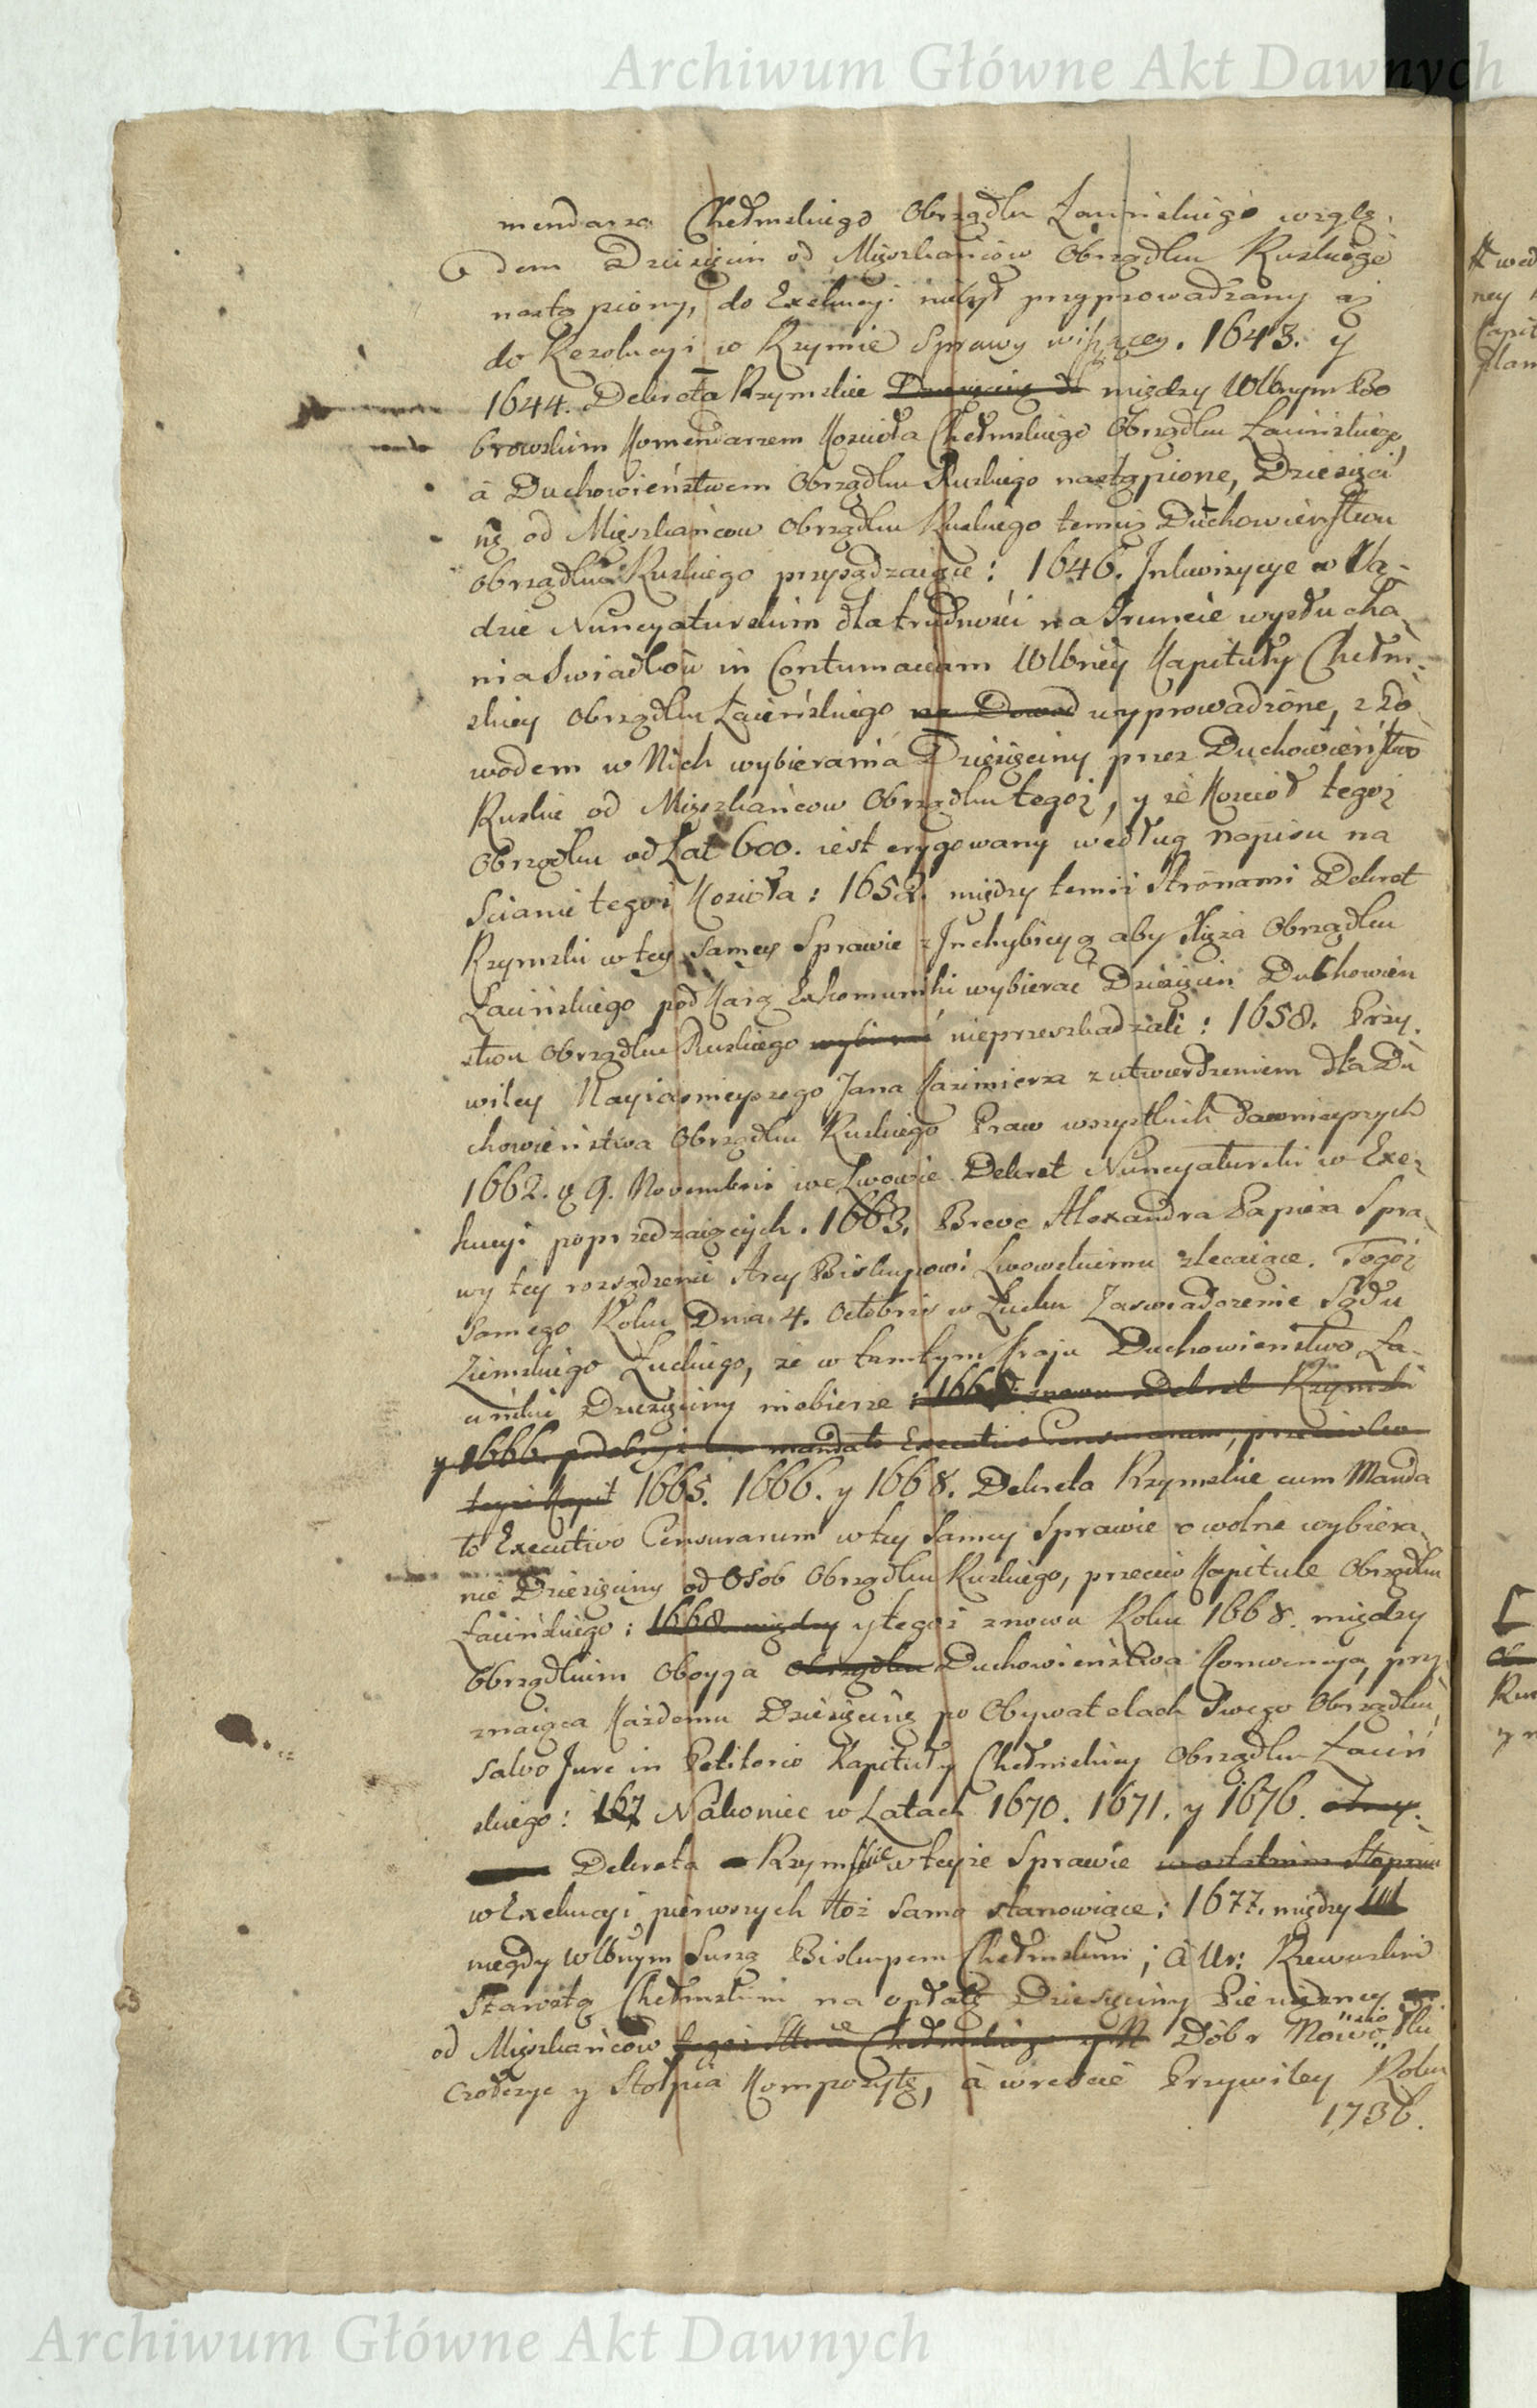 Archiwum Główne Akt Dawnych
mendarza Chełmskiego Obrządku Łacinskiego wzglę
dem Dziesięcin od Mięszkańcow Obrządku Ruskiego
nastąpiony, do Exekucyi niebył przyprowadzany aż
do Rezolucyi w Rzymie Sprawy wiszącey. 1643. y
1644. Dekreta Rzymskie Dziesięcinę między Wlbnym Bo
browskim Komendarzem Kościoła Chełmskiego Obrządku Łacińskiego,
á Duchowieństwem Obrządku Ruskiego nastąpione, Dziesięci
nę od Mięszkańcow Obrządku Ruskiego temuż Duchowieństwu
obrządku Ruskiego przysądzaiące: 1646. Inkwizycye w Są-
dzie Nuncyaturskim dla trudności na Gruncie wysłucha
nia Swiadkow in Contumaciam Wlbney Kapituły Chełm-
skiey Obrządku Łacińskiego na Dowod wyprowadzone, z Do
wodem w Nich wybierania Dziesięciny przez Duchowieństwo
Ruskie od Mięszkańcow Obrządku tegoż, y że Kościoł tegoż
Obrządku od Lat 600. iest erygowany według napisu na
Scianie tegoż Kościoła: 1652. między temiż Stronami Dekret
Rzymski w tey samey Sprawie z Inchybicyą aby Xięża Obrządku
Łacińskiego pod Karą Exkomuniki wybierać Dziesięcin Duchowień
stwu Obrządku Ruskiego wybierać nieprzeszkadzali: 1658. Przy-
wiley Nayiaśnieyszego Jana Kazimierza z utwierdzeniem dla Du
chowieństwa Obrządku Ruskiego Praw wszystkich dawnieyszych
1662. 9. Novembris we Lwowie Dekret Nuncyaturski w Exe-
kucyi poprzedzaiących. 1663. Breve Alexandra Papieża Spra
wy tey rozsądzenie Arcy Biskupowi Lwowskiemu zlecaiące. Tegoż
Samego Roku Dnia 4. Octobris w Łucku Zaświadczenie Sądu
Ziemskiego Łuckiego, że w tamtym Kraju Duchowieństwo Ła-
cińskie Dziesięciny niebierze: 1665. znowu Dekret Rzymski
y 1666. podobnyż mandato Executivo Censurarum, przeciwko
teyże Kapit 1665. 1666. y 1668. Dekreta Rzymskie cum Manda
to Executivo Censurarum w tey Samey Sprawie o wolne wybiera
nie Dziesięciny od Osób Obrządku Ruskiego, przeciw Kapitule Obrządku
Łacińskiego: 1668 między y tegoż znowu Roku 1668. między
Obrządkiem oboyga obrządku Duchowieństwa Konwencya, przy
znaiąca Każdemu Dziesięcinę po Obywatelach Swego Obrządku,
salvo Jure in Petitorio Kapituły Chełmskiey Obrządku Łaciń
skiego: 167 Nakoniec w Latach 1670. 1671. y 1676.
Dekreta Rzymskie w teyże Sprawie w ostatnim Stopniu
w Exekucyi pierwszych toż samo stanowiące: 1677. między
między Wlbnym Suszą Biskupem Chełmskim; á Ur: Rzewuskim
Starostą Chełmskim na opłatę Dziesięciny Pieniężney
od Mięszkańcow Dóbr Nowo
y Stołpia Kompozytę, á wreście Przywiley Roku
1736.
Archiwum Główne Akt Dawnych